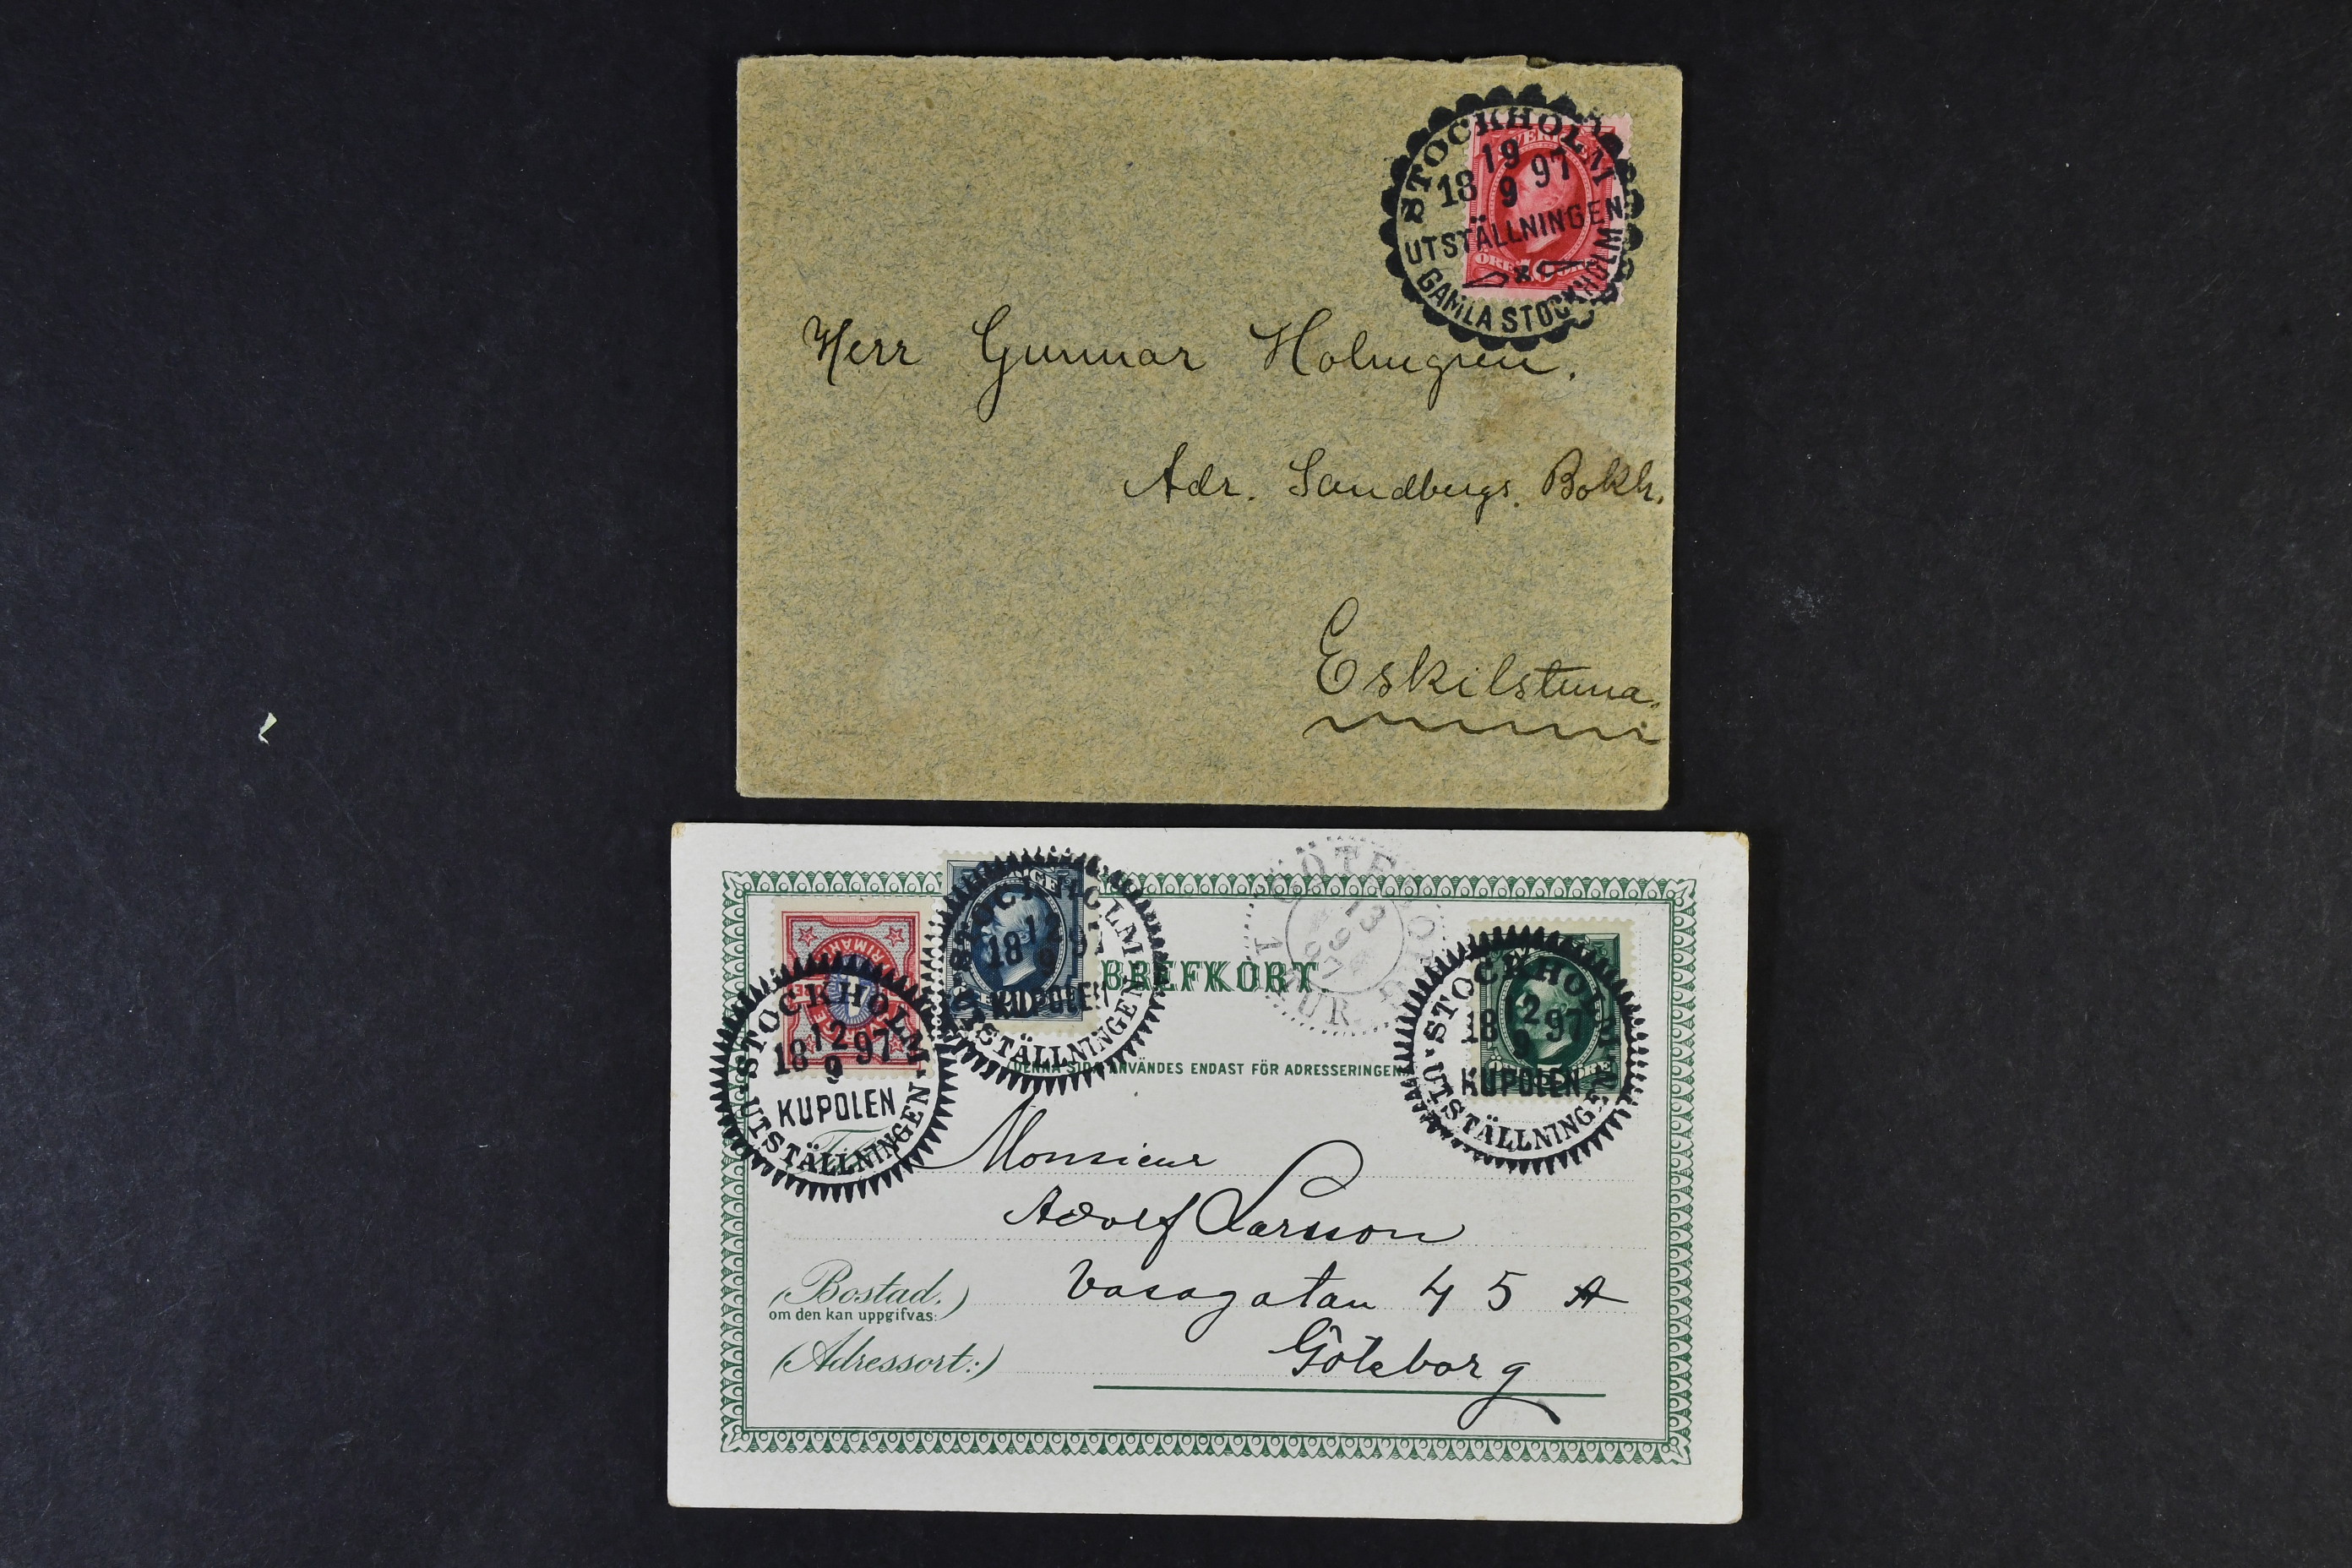 STOCKHOLM
19
18 97
9
UTSTÄLLNINGEN
GAMLA STOCKHOLM
ÖRE 10 ÖRE
Herr Gunnar Holmgren.
Adr. Sandbergs. Bokh.
Eskilstuna.
STOCKHOLM
12
18 97
9
KUPOLEN
UTSTÄLLNINGEN
STOCKHOLM
18
9
KUPOLEN
UTSTÄLLNINGEN
BREFKORT
13
9
97
TUR
STOCKHOLM
12
18 97
9
KUPOLEN
UTSTÄLLNINGEN
(DENNA SIDA ANVÄNDES ENDAST FÖR ADRESSERINGEN.)
Till
Monsieur
Adolf Larsson
(Bostad.)
om den kan uppgifvas:
Vasagatan 45 A
(Adressort:)
Göteborg